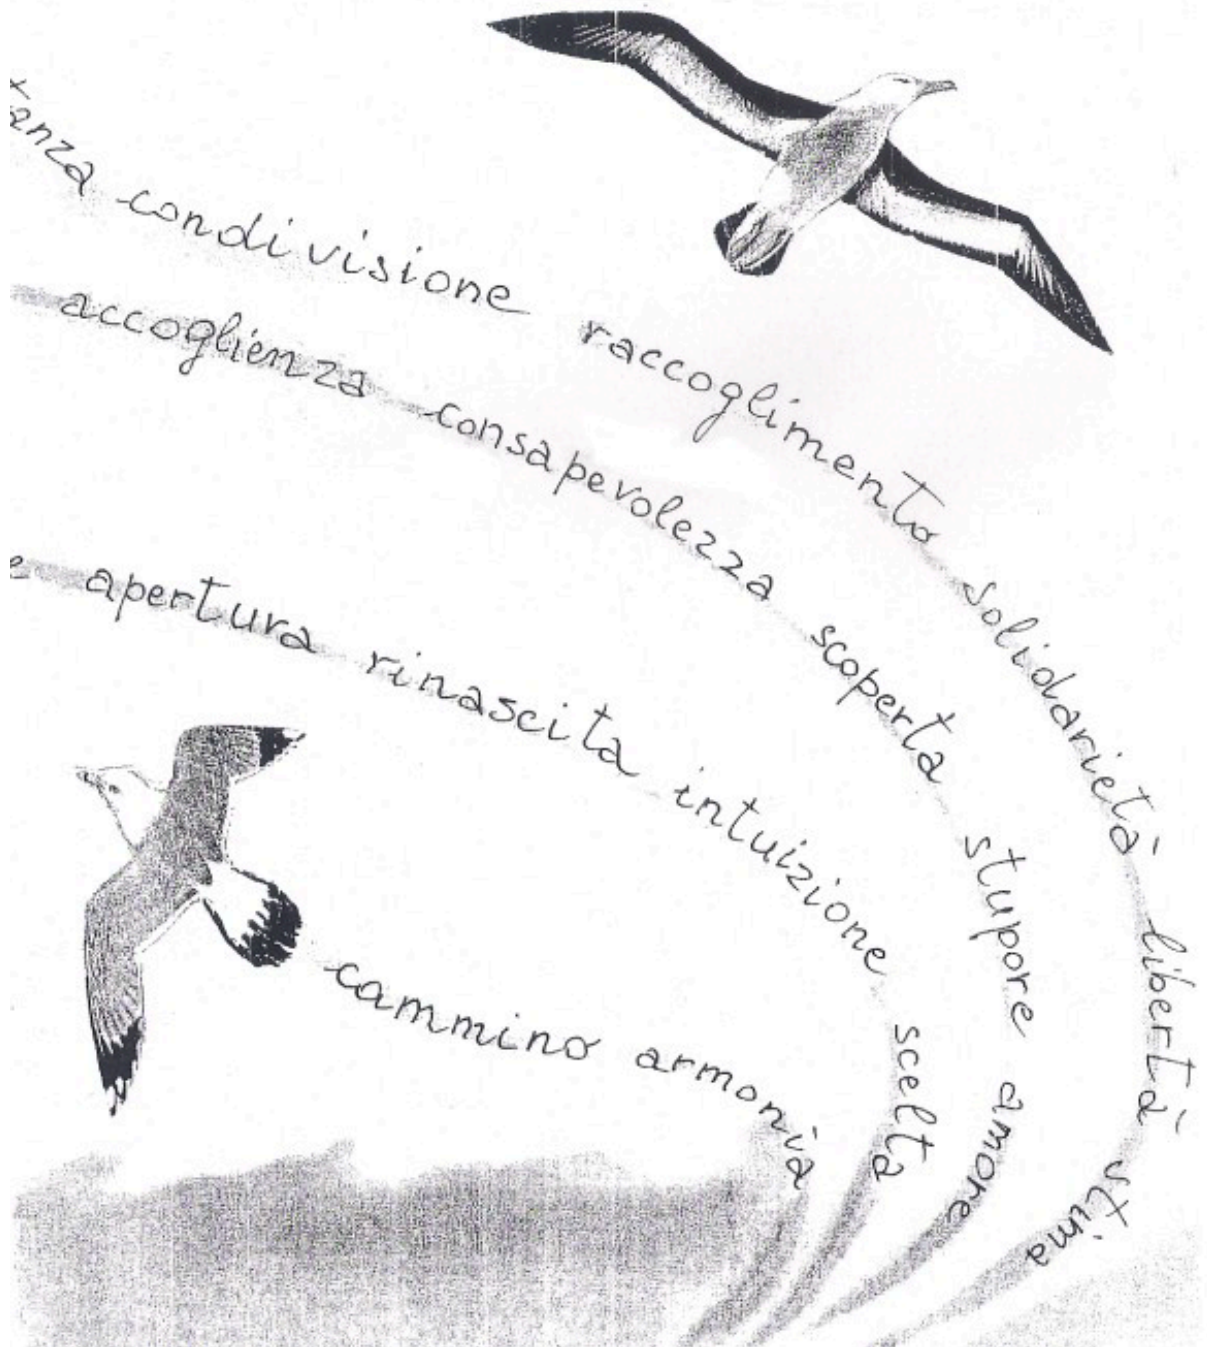 condivisione raccoglimento solidarietà libertà stima
accoglienza consapevolezza scoperta stupore amore
apertura rinascita intuizione scelta
cammino armonia